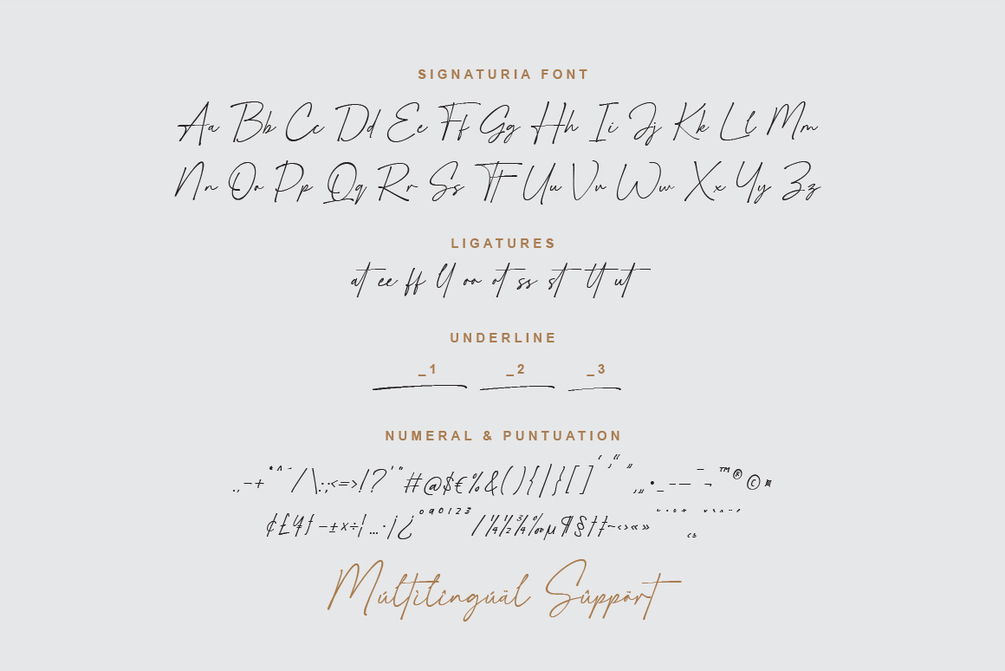 SIGNATURIA FONT
Aa Bb Cc Dd Ee Ff Gg Hh Ii Jj Kk Ll Mm
Nn Oo Pp Qq Rr Ss Tt Uu Vv Ww Xx Yy Zz
LIGATURES
at ee ff ll oo ot ss st tt ut
UNDERLINE
_1 _2 _3
NUMERAL & PUNTUATION
.,-+*^~/\:;<=>!?'"#@$€%&(){|}[]‘’“”‚„•_–—¯¬™®©¤
¢£¥ƒ−±×÷¡…·¦¿ºª0123/¼½¾‰µ¶§†‡~‹›«»
Múltîlingúäl Súppört